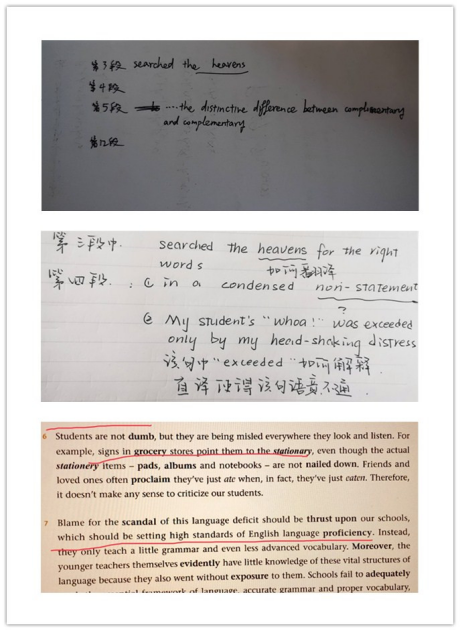 第3段 searched the heavens
第4段
第5段 .... the distinctive difference between complimentary
and complementary
第12段
第三段中. searched the heavens for the right
words 如何翻译
第四段. : ① in a condensed non-statement
?
② My student's "whoa!" was exceeded
only by my head-shaking distress
该句中"exceeded"如何解释
直译使得该句语意不通.
6 Students are not dumb, but they are being misled everywhere they look and listen. For
example, signs in grocery stores point them to the stationary, even though the actual
stationery items – pads, albums and notebooks – are not nailed down. Friends and
loved ones often proclaim they've just ate when, in fact, they've just eaten. Therefore,
it doesn't make any sense to criticize our students.
7 Blame for the scandal of this language deficit should be thrust upon our schools,
which should be setting high standards of English language proficiency. Instead,
they only teach a little grammar and even less advanced vocabulary. Moreover, the
younger teachers themselves evidently have little knowledge of these vital structures of
language because they also went without exposure to them. Schools fail to adequately
essential framework of language, accurate grammar and proper vocabulary,